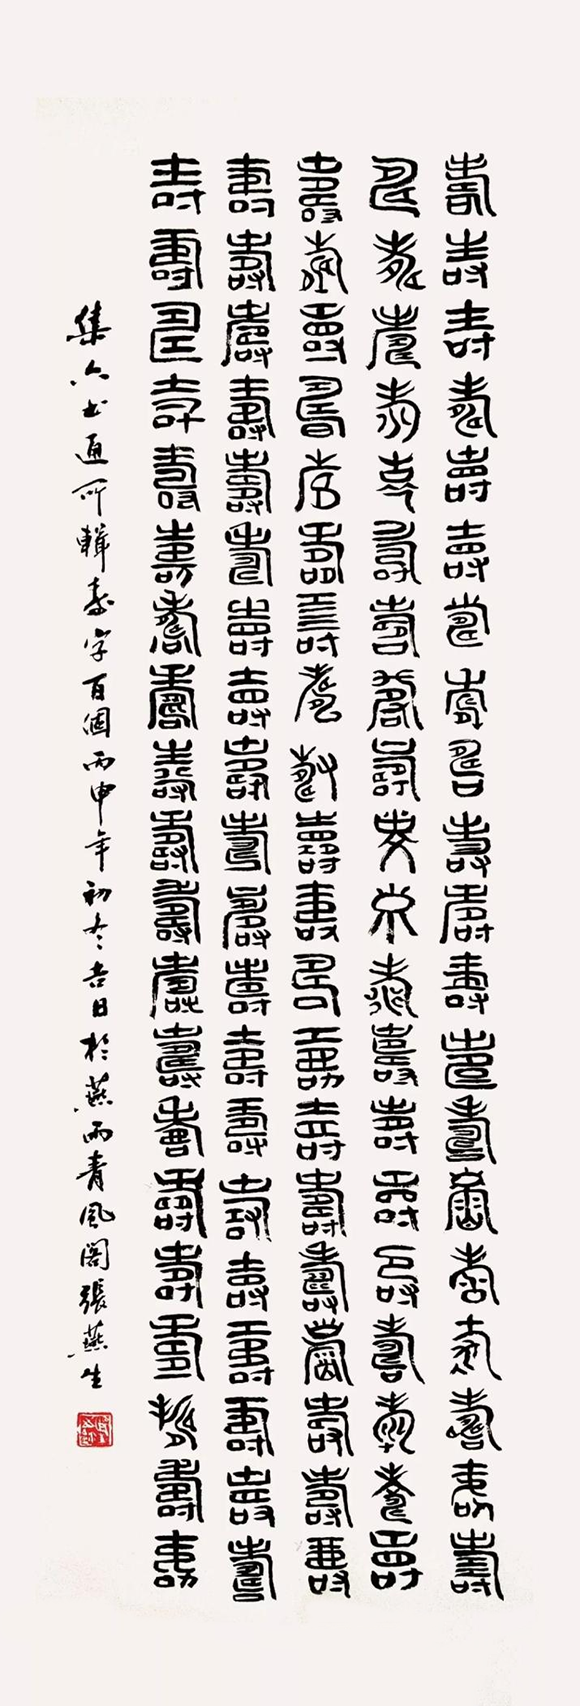 壽壽壽壽壽壽壽壽壽壽壽壽壽壽壽壽壽壽壽壽
壽壽壽壽壽壽壽壽壽壽壽壽壽壽壽壽壽壽壽壽
壽壽壽壽壽壽壽壽壽壽壽壽壽壽壽壽壽壽壽壽
壽壽壽壽壽壽壽壽壽壽壽壽壽壽壽壽壽壽壽壽
壽壽壽壽壽壽壽壽壽壽壽壽壽壽壽壽壽壽壽壽
集六书通所輯寿字百個丙申年初冬吉日於燕雨青風閣張燕生